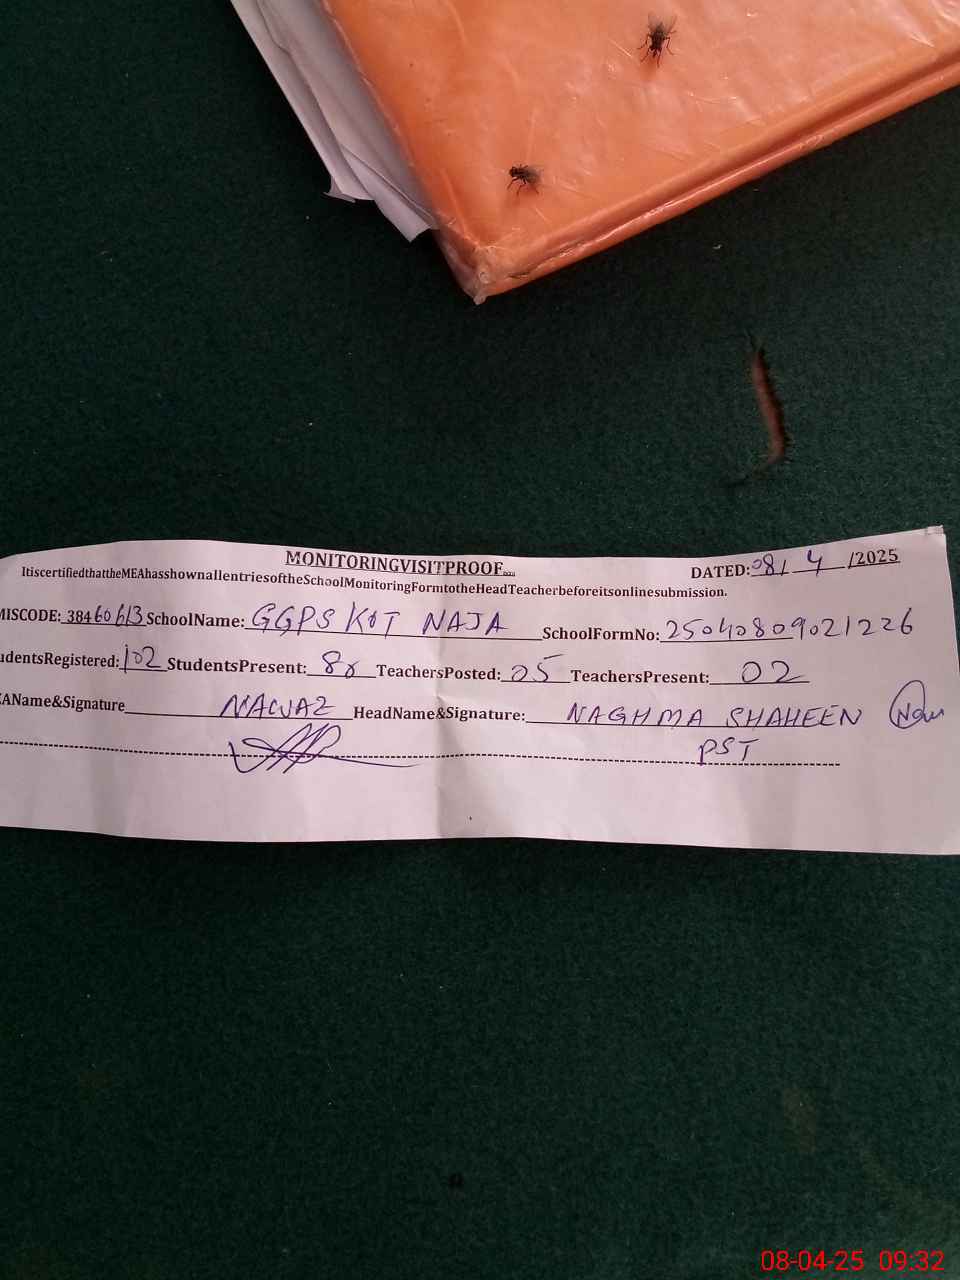 MONITORINGVISITPROOF
DATED: 08/ 4 /2025
ItiscertifiedthattheMEAhasshownallentriesoftheSchoolMonitoringFormtotheHeadTeacherbeforeitsonlinesubmission.
MISCODE: 38460613 SchoolName: GGPS KOT NAJA SchoolFormNo: 25040809021226
udentsRegistered: 102 StudentsPresent: TeachersPosted: 05 TeachersPresent: 02
AName&Signature NAWAZ HeadName&Signature: NAGHMA SHAHEEN
PST
08-04-25 09:32